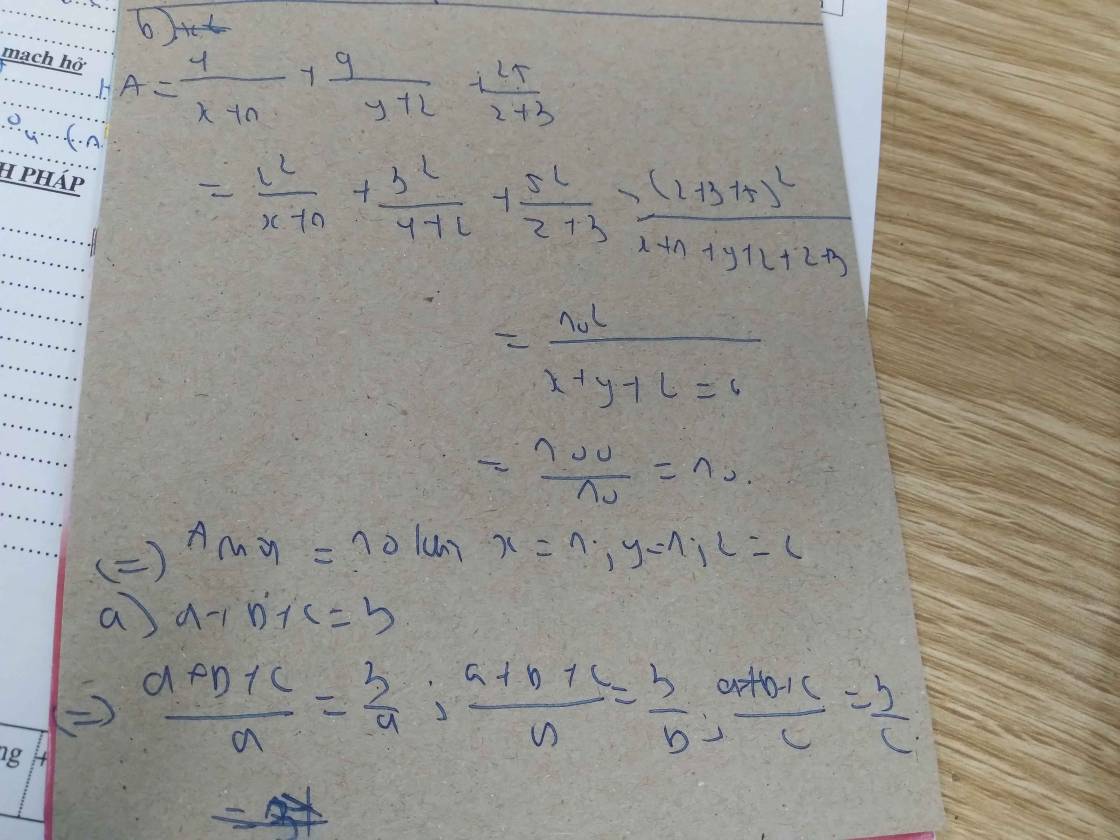 mạch hở
H PHÁP
b)
A = 4/(x+1) + 9/(y+2) + 25/(z+3)
= 2²/(x+1) + 3²/(y+2) + 5²/(z+3) ≥ (2+3+5)²/(x+1+y+2+z+3)
= 10²/(x+y+z=6)
= 100/10 = 10.
(=) A min = 10 khi x = 1; y=1; z = 2
a) a+b+c = 3
(=) (a+b+c)/a = 3/a; (a+b+c)/b = 3/b; (a+b+c)/c = 3/c
ng